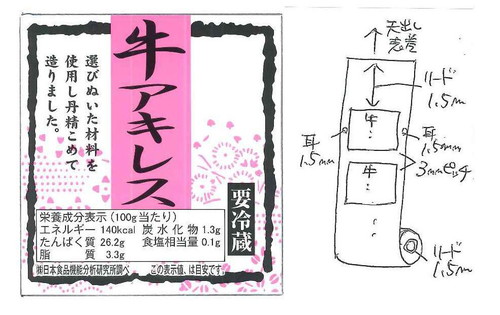 牛アキレス
選びぬいた材料を
使用し丹精こめて
造りました。
要冷蔵
栄養成分表示(100g当たり)
エネルギー 140kcal 炭水化物 1.3g
たんぱく質 26.2g 食塩相当量 0.1g
脂質 3.3g
㈱日本食品機能分析研究所調べ この表示値、は目安です
天出し
表巻
リード
1.5m
牛
耳
1.5mm
耳
1.5mm
3mmピッチ
牛
リード
1.5m